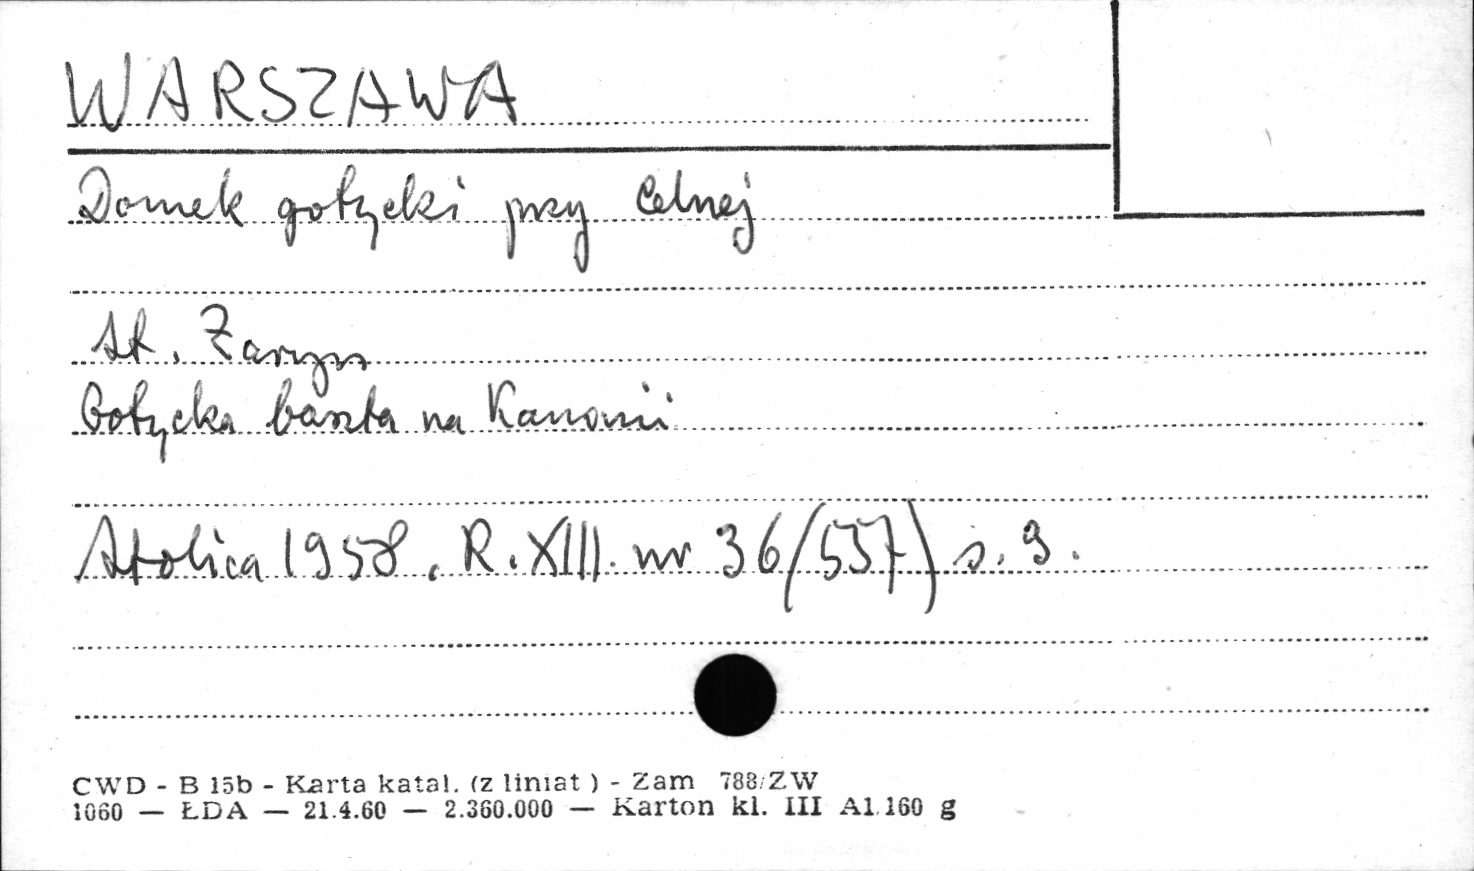 WARSZAWA
Domek gotycki przy Celnej
St. Żaryn
Gotycka baszta na Kanonii
Stolica 1958, R. XIII. nr 36/557) s. 9.
CWD - B 15b - Karta katal. (z liniat ) - Zam 788/ZW
1060 — ŁDA — 21.4.60 — 2.360.000 — Karton kl. III A1.160 g